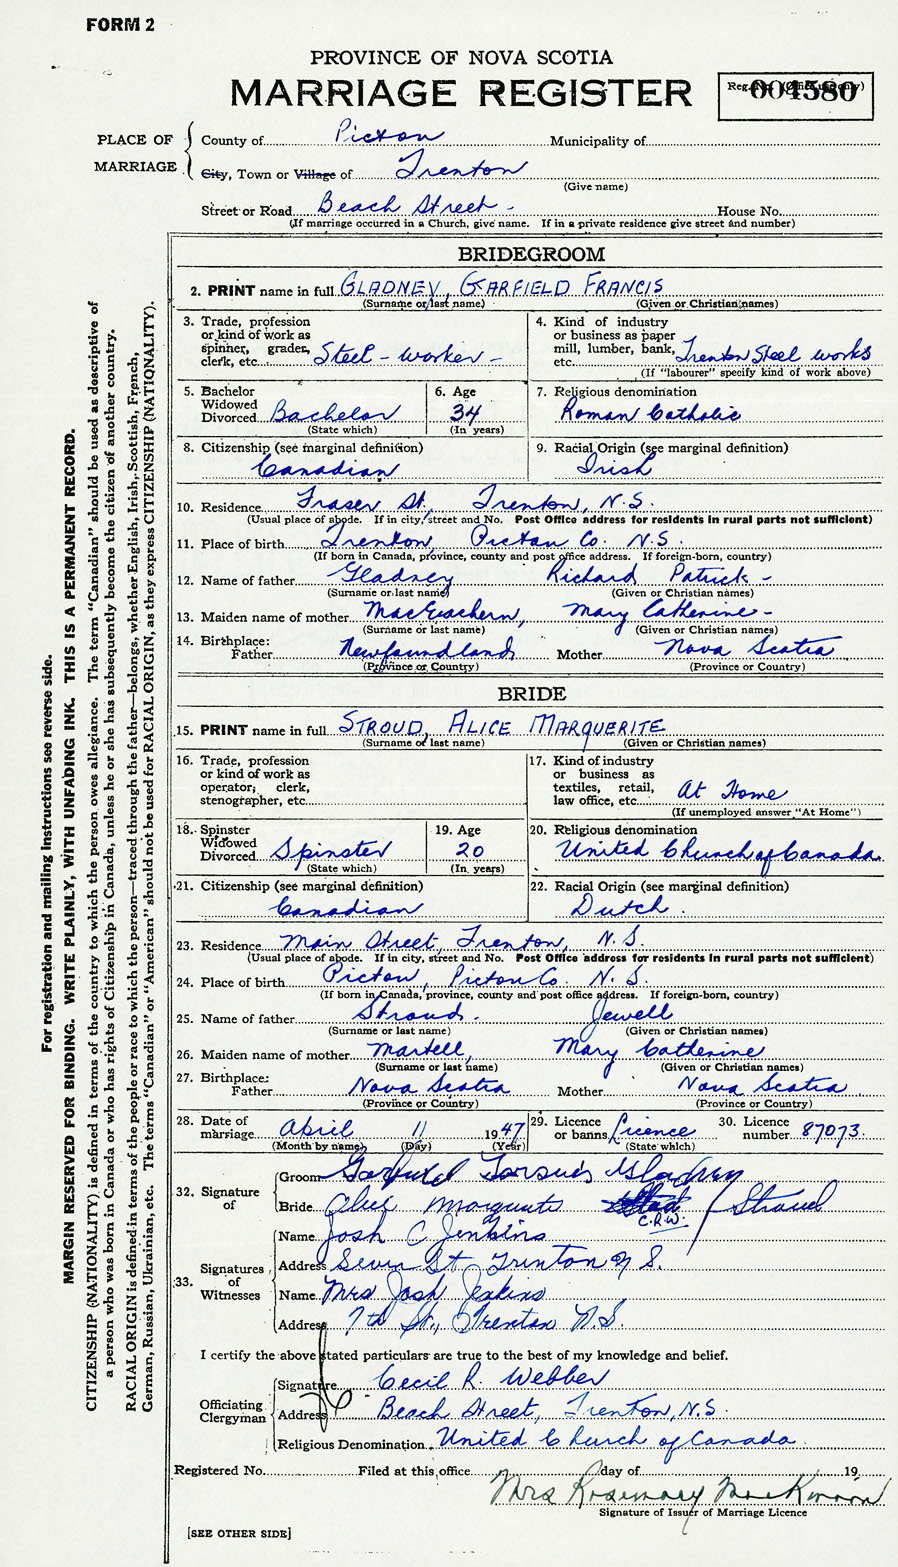 FORM 2
PROVINCE OF NOVA SCOTIA
MARRIAGE REGISTER
Reg. No. (Office use only) 004580
PLACE OF MARRIAGE
County of Pictou Municipality of
City, Town or Village of Trenton
(Give name)
Street or Road Beach Street - House No.
(If marriage occurred in a Church, give name. If in a private residence give street and number)
BRIDEGROOM
2. PRINT name in full GLADNEY, GARFIELD FRANCIS
(Surname or last name) (Given or Christian names)
3. Trade, profession or kind of work as spinner, grader, clerk, etc. Steel - worker -
4. Kind of industry or business as paper mill, lumber, bank, etc. Trenton Steel works
(If "labourer" specify kind of work above)
5. Bachelor Widowed Divorced Bachelor
(State which)
6. Age 34
(In years)
7. Religious denomination
Roman Catholic
8. Citizenship (see marginal definition)
Canadian
9. Racial Origin (see marginal definition)
Irish
10. Residence Fraser St., Trenton, N.S.
(Usual place of abode. If in city, street and No. Post Office address for residents in rural parts not sufficient)
11. Place of birth Trenton, Pictou Co. N.S.
(If born in Canada, province, county and post office address. If foreign-born, country)
12. Name of father Gladney Richard Patrick -
(Surname or last name) (Given or Christian names)
13. Maiden name of mother MacEachern, Mary Catherine -
(Surname or last name) (Given or Christian names)
14. Birthplace: Father Newfoundland Mother Nova Scotia
(Province or Country) (Province or Country)
BRIDE
15. PRINT name in full STROUD, ALICE MARQUERITE
(Surname or last name) (Given or Christian names)
16. Trade, profession or kind of work as operator, clerk, stenographer, etc.
17. Kind of industry or business as textiles, retail, law office, etc. At Home
(If unemployed answer "At Home")
18. Spinster Widowed Divorced Spinster
(State which)
19. Age 20
(In years)
20. Religious denomination
United Church of Canada
21. Citizenship (see marginal definition)
Canadian
22. Racial Origin (see marginal definition)
Dutch.
23. Residence Main Street, Trenton, N.S.
(Usual place of abode. If in city, street and No. Post Office address for residents in rural parts not sufficient)
24. Place of birth Pictou, Pictou Co. N.S.
(If born in Canada, province, county and post office address. If foreign-born, country)
25. Name of father Stroud. Jewell
(Surname or last name) (Given or Christian names)
26. Maiden name of mother Martell, Mary Catherine
(Surname or last name) (Given or Christian names)
27. Birthplace: Father Nova Scotia Mother Nova Scotia
(Province or Country) (Province or Country)
28. Date of marriage April 11 1947
(Month by name) (Day) (Year)
29. Licence or banns Licence
(State which)
30. Licence number 87073.
32. Signature of
Groom Garfield Gladney
Bride Alice Margurite Stroud
C.R.W.
33. Signatures of Witnesses
Name Josh C Jenkins
Address Seven St Trenton N.S.
Name Mrs Josh Jenkins
Address 7th St., Trenton N.S.
I certify the above stated particulars are true to the best of my knowledge and belief.
Officiating Clergyman
Signature Cecil R. Webber
Address Beach Street, Trenton, N.S.
Religious Denomination United Church of Canada.
Registered No. Filed at this office day of 19
Mrs Rosemary MacKinnon
Signature of Issuer of Marriage Licence
[SEE OTHER SIDE]
For registration and mailing instructions see reverse side.
MARGIN RESERVED FOR BINDING. WRITE PLAINLY, WITH UNFADING INK. THIS IS A PERMANENT RECORD.
CITIZENSHIP (NATIONALITY) is defined in terms of the country to which the person owes allegiance. The term "Canadian" should be used as descriptive of
a person who was born in Canada or who has rights of Citizenship in Canada, unless he or she has subsequently become the citizen of another country.
RACIAL ORIGIN is defined in terms of the people or race to which the person—traced through the father—belongs, whether English, Irish, Scottish, French,
German, Russian, Ukrainian, etc. The terms "Canadian" or "American" should not be used for RACIAL ORIGIN, as they express CITIZENSHIP (NATIONALITY).